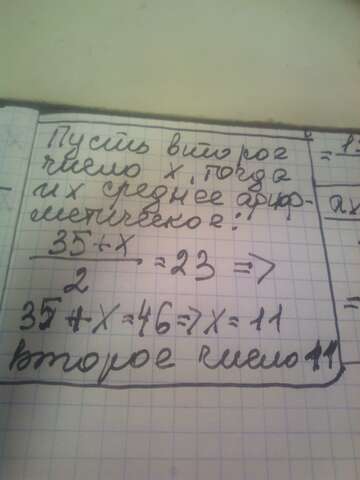 Пусть второе
число х, тогда
их среднее ариф-
метическое:
35+х
2
=23 =>
35+х=46=>х=11
второе число 11